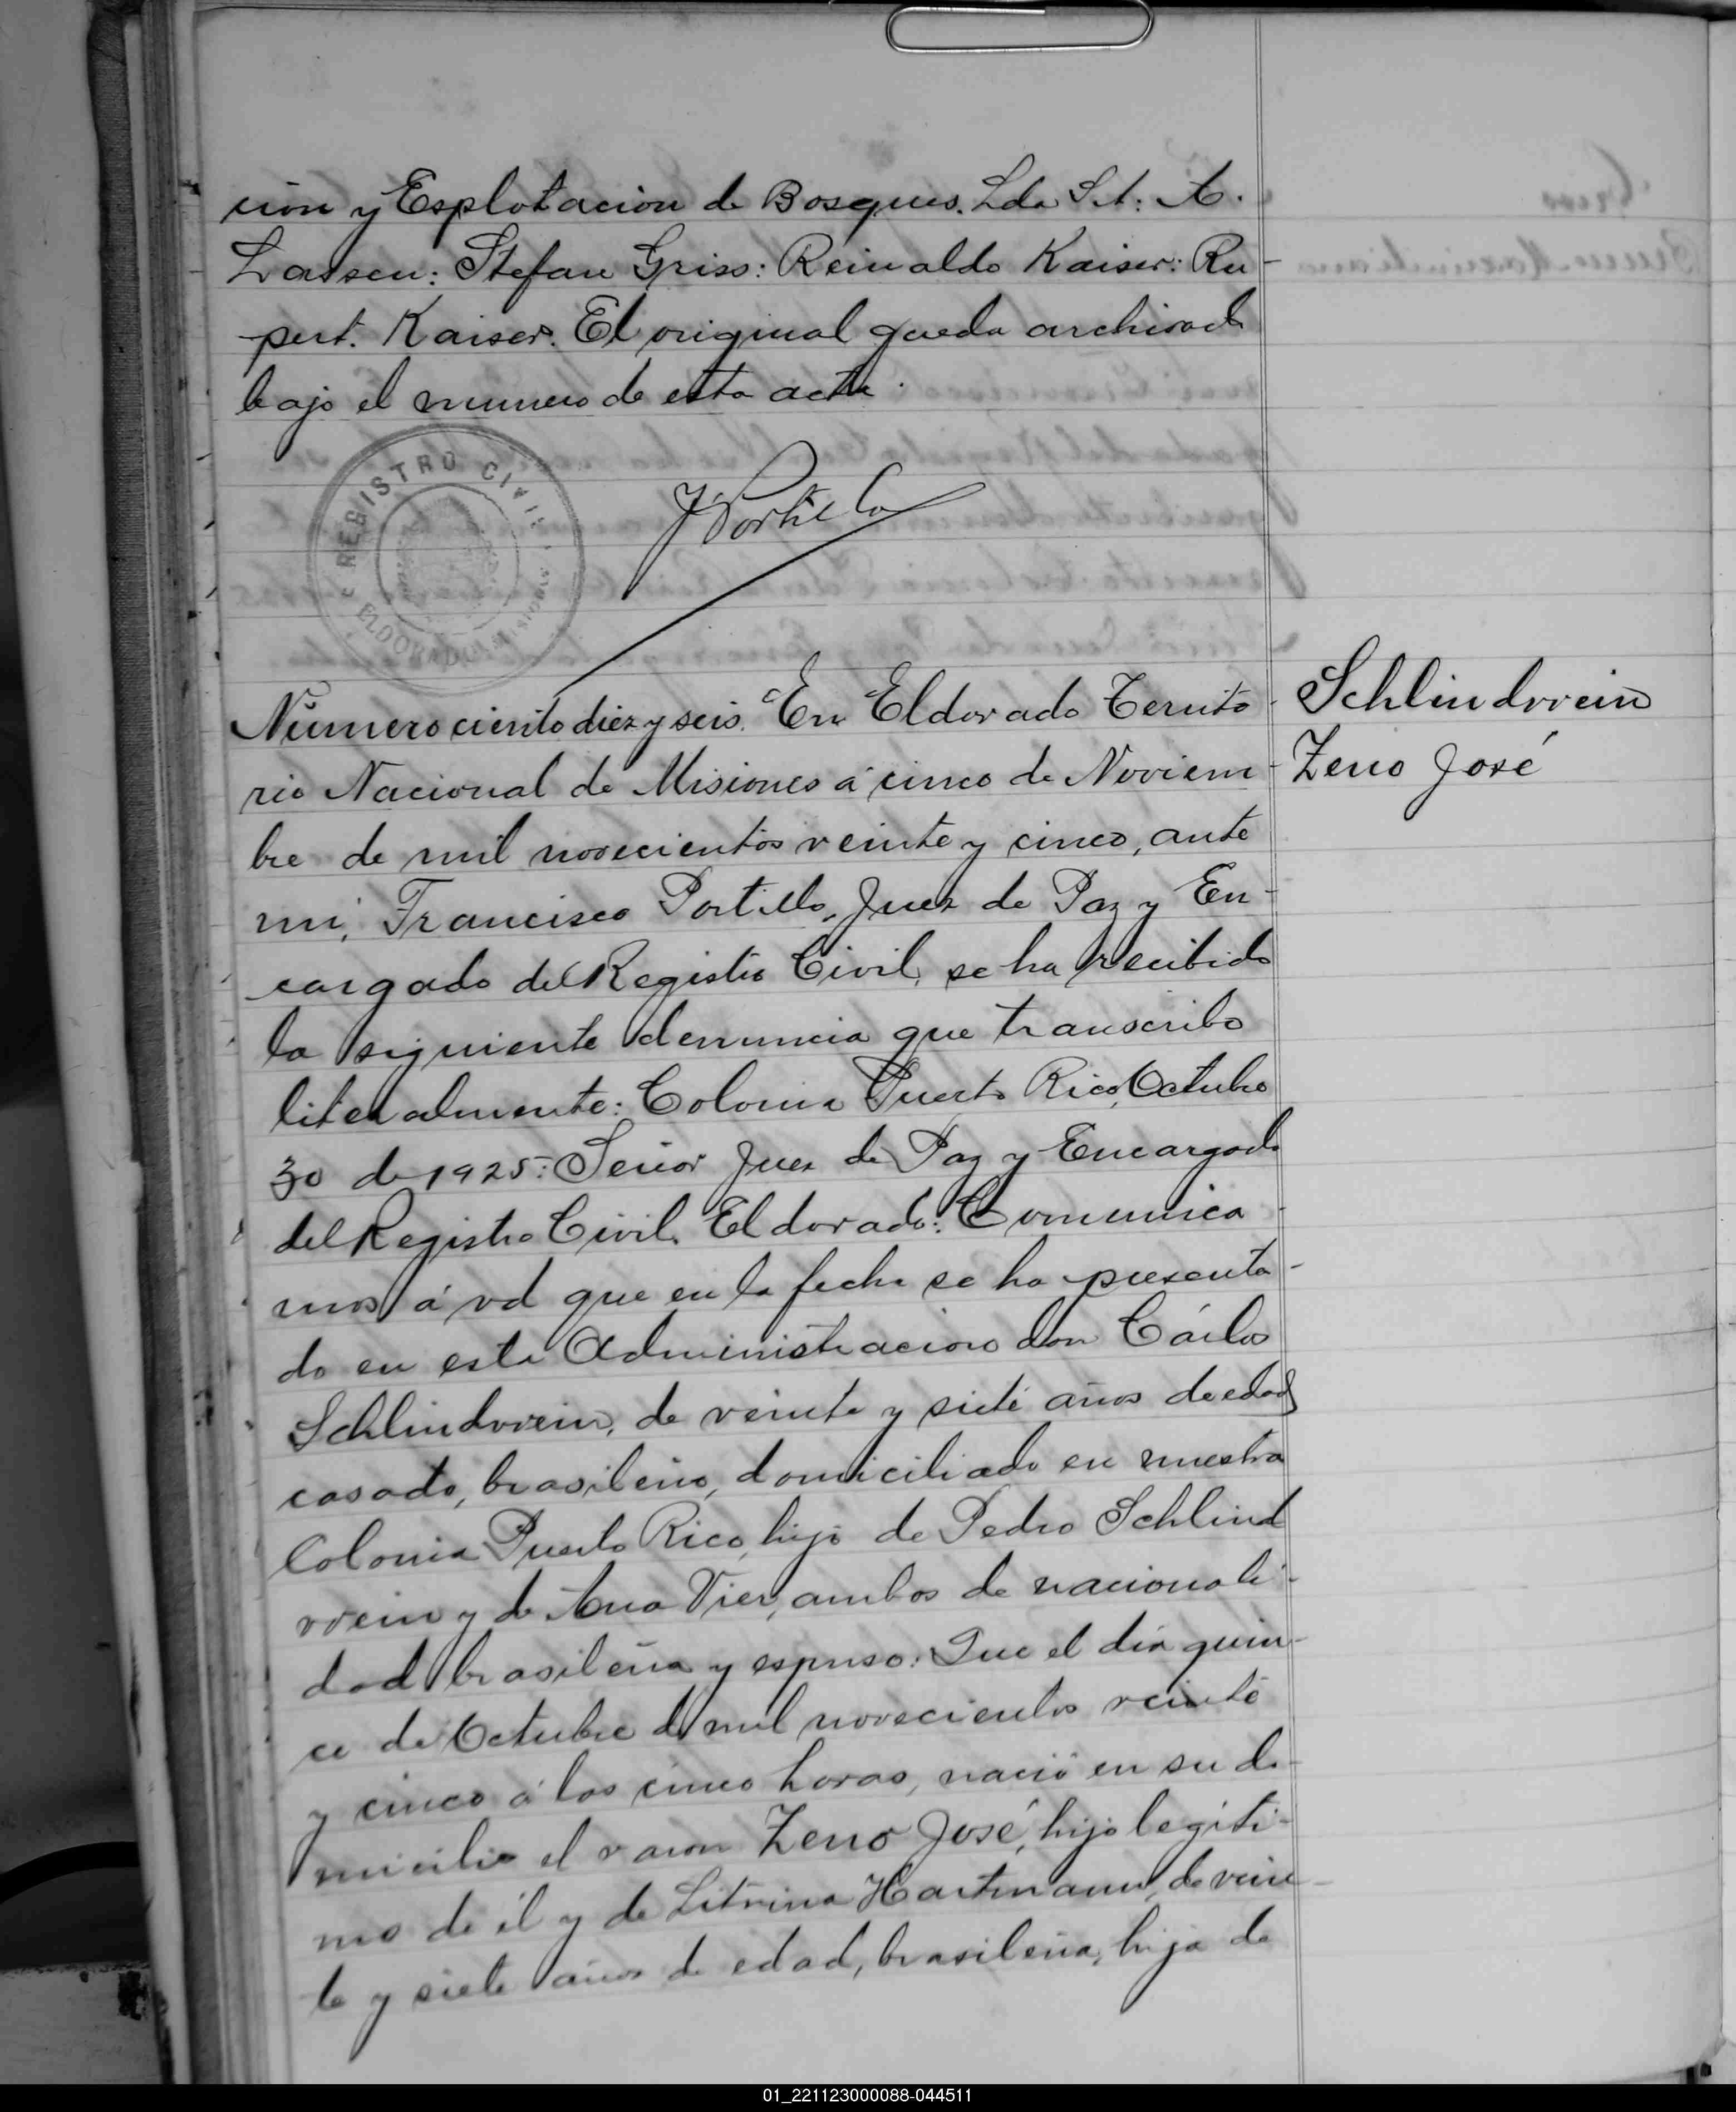 cion y Esplotacion de Bosques. Lda S. A: A.
Lassen: Stefan Griss: Reinaldo Kaiser: Ru-
pert. Kaiser. El original queda archivado
bajo el numero de esta acta.
REGISTRO CIVIL
ELDORADO MISIONES
F. Portillo
Número ciento diez y seis. En Eldorado Territo-
rio Nacional de Misiones á cinco de Noviem-
bre de mil novecientos veinte y cinco, ante
mi, Francisco Portillo, Juez de Paz y En-
cargado del Registro Civil, se ha recibido
la siguiente denuncia que transcribo
literalmente: Colonia Puerto Rico, Octubre
30 de 1925: Señor Juez de Paz y Encargado
del Registro Civil. Eldorado: Comunica-
mos á vd que en la fecha se ha presenta-
do en esta Administracion don Cárlos
Schlindvvein, de veinte y siete años de edad
casado, brasileño, domiciliado en nuestra
Colonia Puerto Rico, hijo de Pedro Schlind
vvein y de Ana Vier, ambos de nacionali-
dad brasileña y espuso: Que el dia quin-
ce de Octubre de mil novecientos veinte
y cinco á las cinco horas, nació en su do-
micilio el varon Zeno José, hijo legiti-
mo de él y de Litrina Hartmann, de vein-
te y siete años de edad, brasileña, hija de
Schlindvvein
Zeno José
01_221123000088-044511